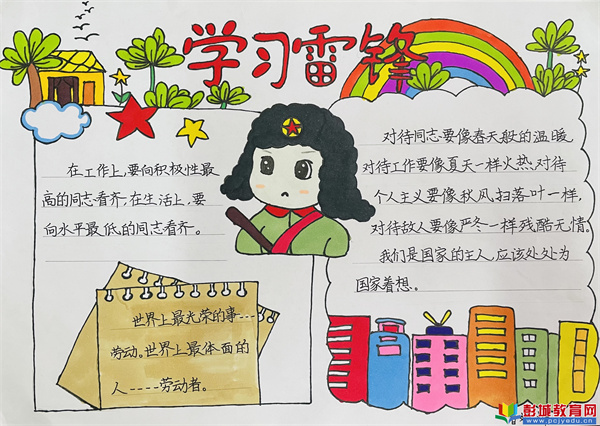 学习雷锋
在工作上,要向积极性最
高的同志看齐,在生活上,要
向水平最低的同志看齐。
世界上最光荣的事---
劳动。世界上最体面的
人----劳动者。
对待同志要像春天般的温暖,
对待工作要像夏天一样火热,对待
个人主义要像秋风扫落叶一样,
对待敌人要像严冬一样残酷无情。
我们是国家的主人,应该处处为
国家着想。
彭城教育网
www.pcjyedu.cn